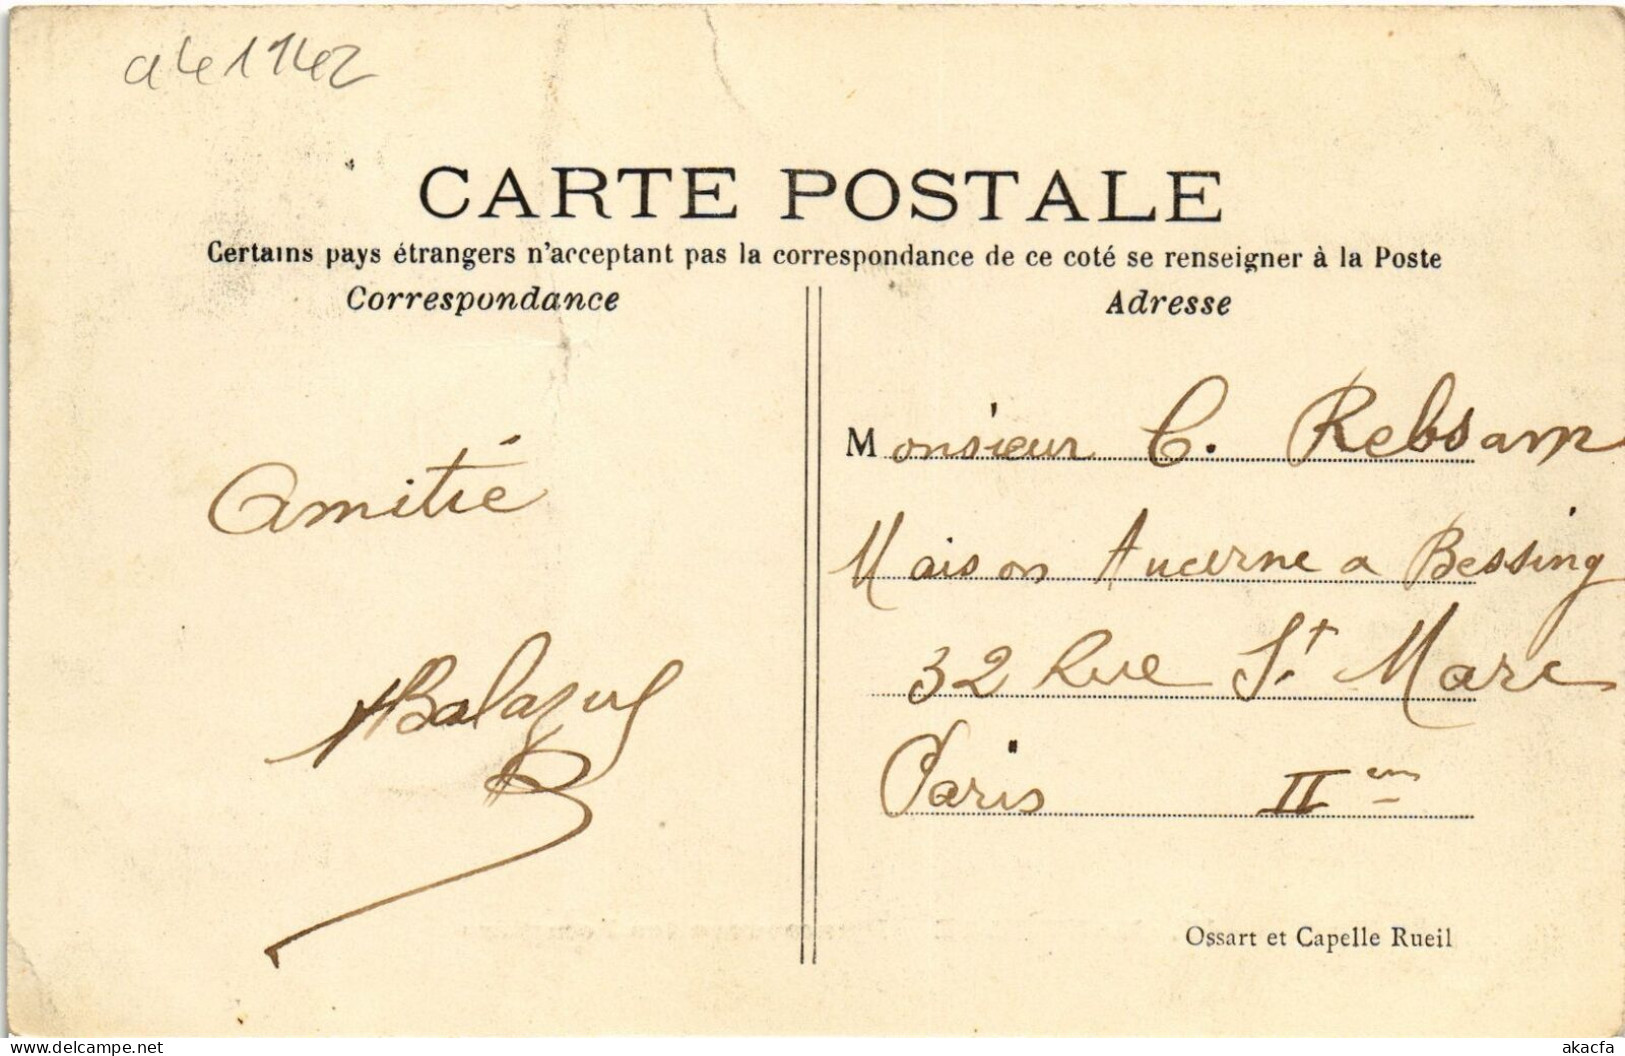 a41142
CARTE POSTALE
Certains pays étrangers n'acceptant pas la correspondance de ce coté se renseigner à la Poste
Correspondance
Adresse
Amitié
Monsieur C. Rebsam
Maison Aucerne a Bessing
32 Rue St Marc
Paris IIem
Ossart et Capelle Rueil
www.delcampe.net
akacfa